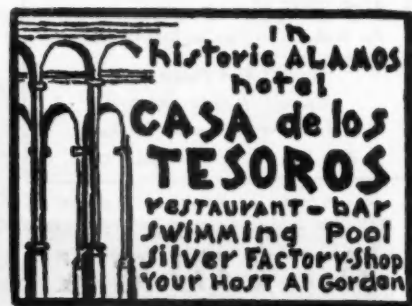 in
historic ALAMOS
hotel
CASA de los
TESOROS
restaurant - bar
swimming Pool
silver Factory-Shop
Your Host Al Gordon